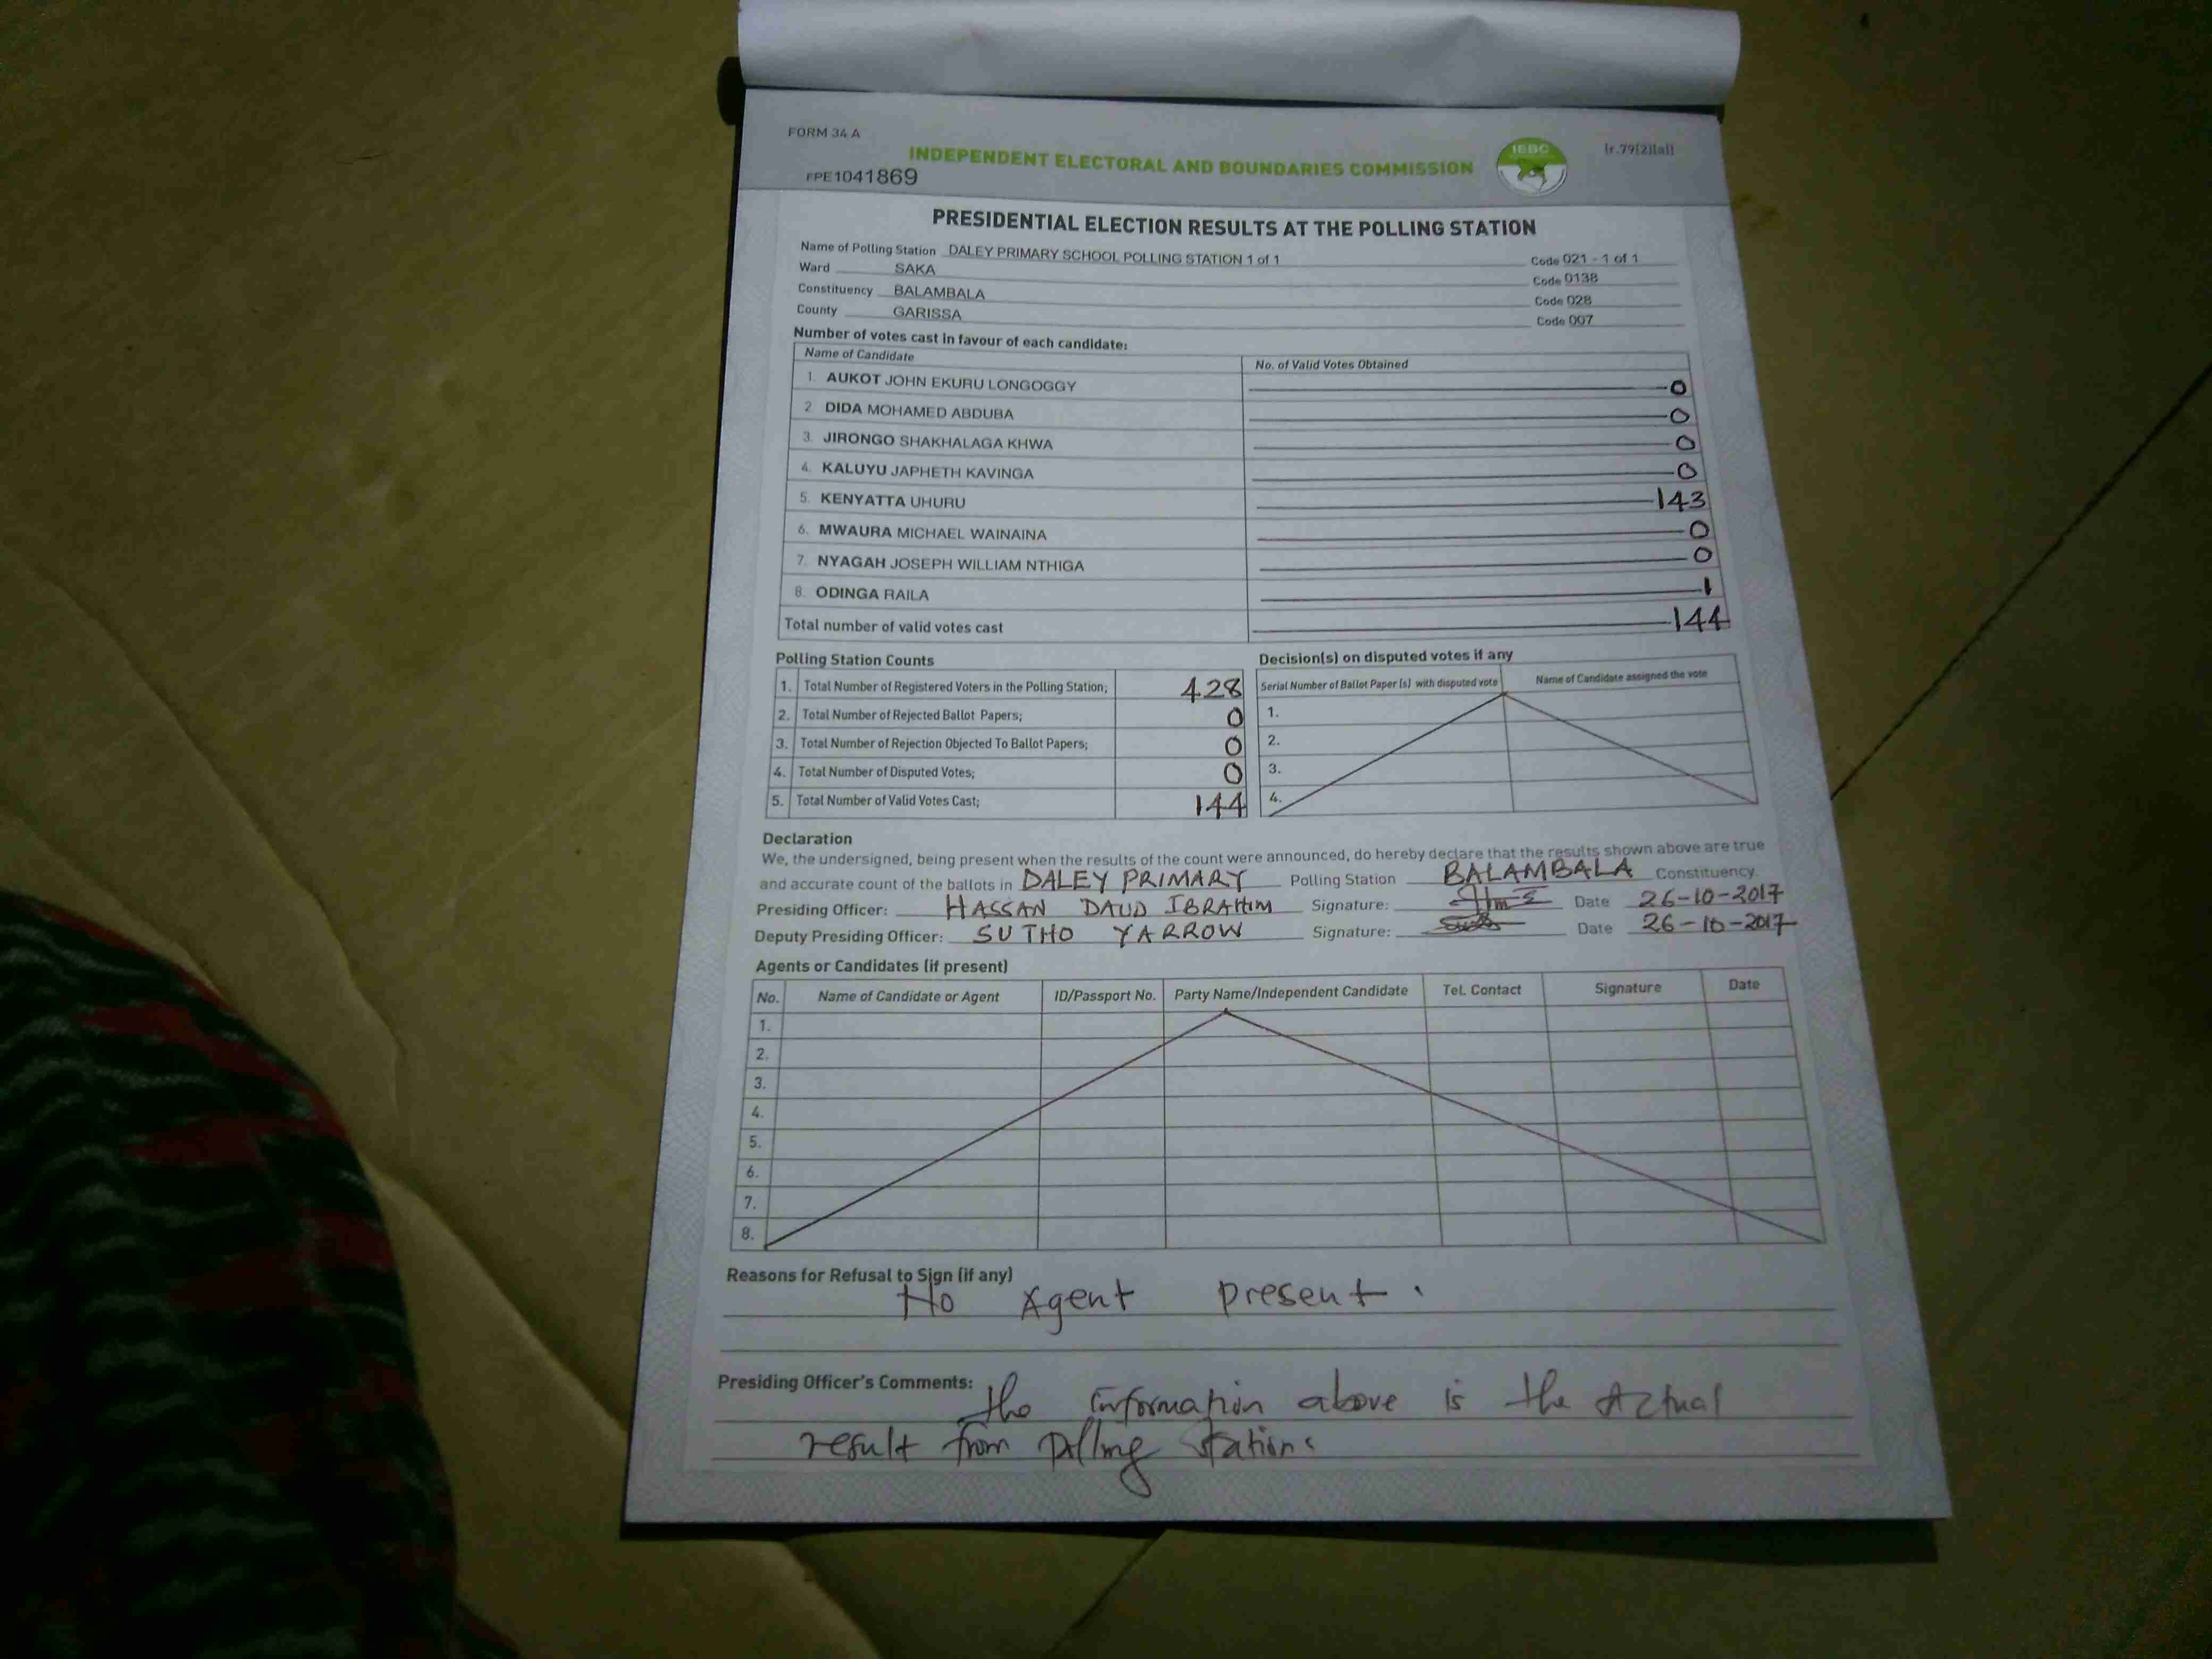 FORM 34 A
INDEPENDENT ELECTORAL AND BOUNDARIES COMMISSION
IEBC
(r.79(2)(a))
FPE1041869
PRESIDENTIAL ELECTION RESULTS AT THE POLLING STATION
Name of Polling Station DALEY PRIMARY SCHOOL POLLING STATION 1 of 1 Code 021 - 1 of 1
Ward SAKA Code 0138
Constituency BALAMBALA Code 028
County GARISSA Code 007
Number of votes cast in favour of each candidate:
Name of Candidate No. of Valid Votes Obtained
1. AUKOT JOHN EKURU LONGOGGY 0
2 DIDA MOHAMED ABDUBA 0
3. JIRONGO SHAKHALAGA KHWA 0
4. KALUYU JAPHETH KAVINGA 0
5. KENYATTA UHURU 143
6. MWAURA MICHAEL WAINAINA 0
7. NYAGAH JOSEPH WILLIAM NTHIGA 0
8. ODINGA RAILA 1
Total number of valid votes cast 144
Polling Station Counts
1. Total Number of Registered Voters in the Polling Station; 428
2. Total Number of Rejected Ballot Papers; 0
3. Total Number of Rejection Objected To Ballot Papers; 0
4. Total Number of Disputed Votes; 0
5. Total Number of Valid Votes Cast; 144
Decision(s) on disputed votes if any
Serial Number of Ballot Paper (s) with disputed vote Name of Candidate assigned the vote
1.
2.
3.
4.
Declaration
We, the undersigned, being present when the results of the count were announced, do hereby declare that the results shown above are true
and accurate count of the ballots in DALEY PRIMARY Polling Station BALAMBALA Constituency.
Presiding Officer: HASSAN DAUD IBRAHIM Signature: Date 26-10-2017
Deputy Presiding Officer: SUTHO YARROW Signature: Date 26-10-2017
Agents or Candidates (if present)
No. Name of Candidate or Agent ID/Passport No. Party Name/Independent Candidate Tel. Contact Signature Date
1.
2.
3.
4.
5.
6.
7.
8.
Reasons for Refusal to Sign (if any)
No Agent present.
Presiding Officer's Comments: the information above is the Actual
result from polling station.